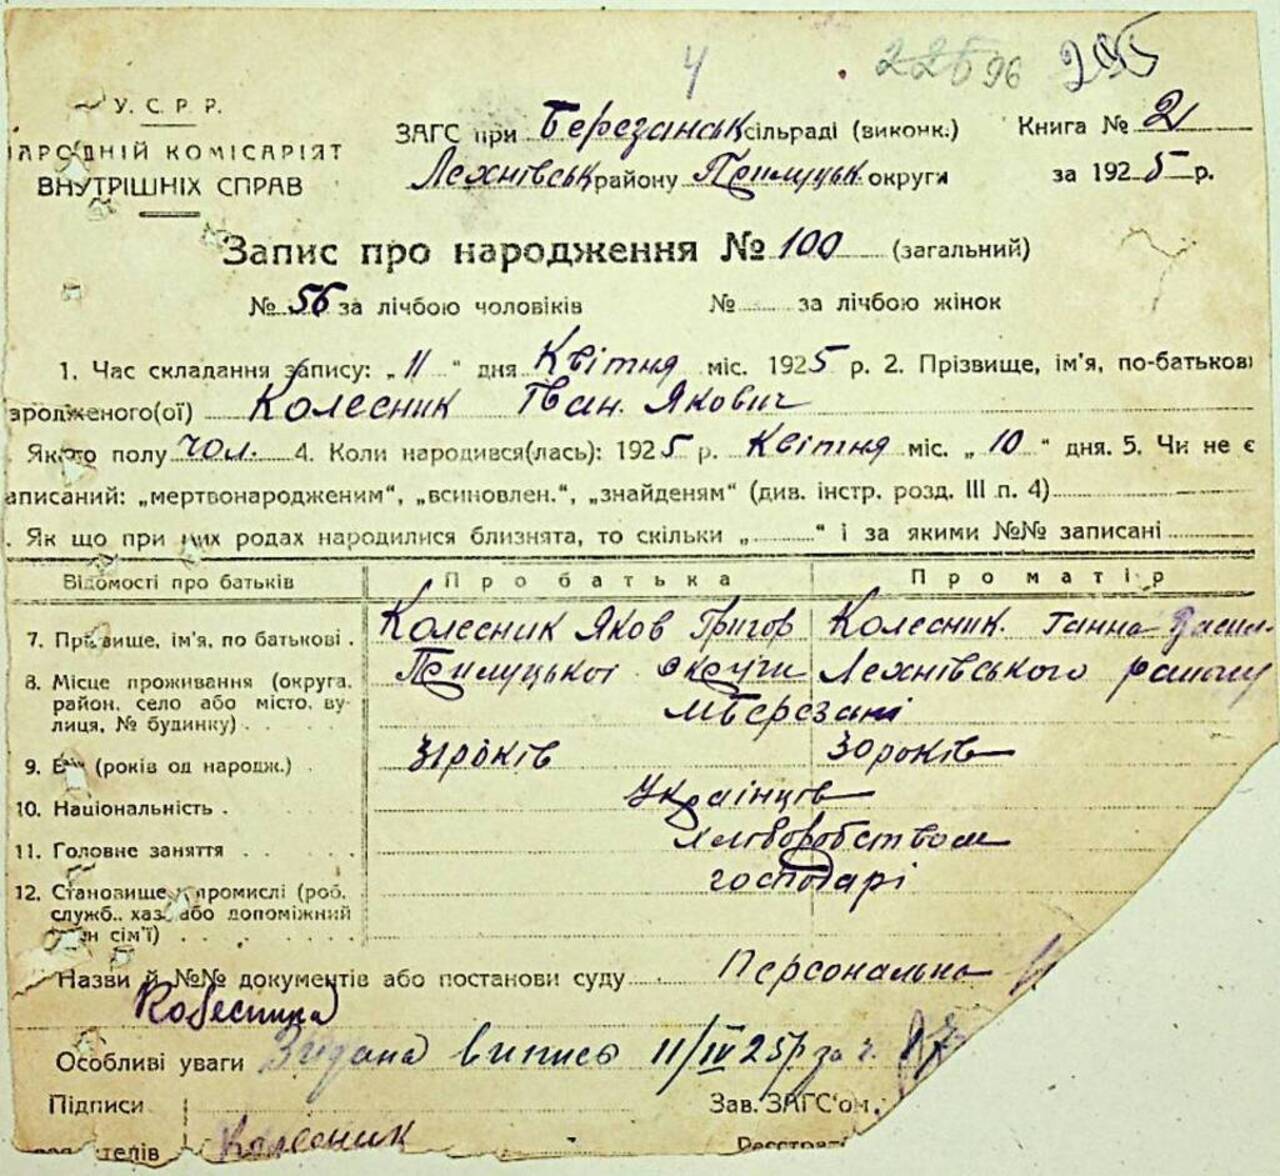 4 226 96 295
У. С. Р. Р.
НАРОДНІЙ КОМІСАРІЯТ
ВНУТРІШНІХ СПРАВ
ЗАГС при Березанськ сільраді (виконк.) Книга № 2
Лехнівськ району Прилуцьк округи за 1925 р.
Запис про народження № 100 (загальний)
№ 56 за лічбою чоловіків № за лічбою жінок
1. Час складання запису: „11“ дня Квітня міс. 1925 р. 2. Прізвище, ім'я, по-батькові
народженого(ої) Колесник Іван Якович
Якого полу чол. 4. Коли народився(лась): 1925 р. Квітня міс. „10“ дня. 5. Чи не є
аписаний: „мертвонародженим“, „всиновлен.“, „знайденям“ (див. інстр. розд. III п. 4)
. Як що при цих родах народилися близнята, то скільки „ “ і за якими №№ записані
Відомості про батьків Про батька Про матір
7. Прізвище, ім'я, по батькові . Колесник Яков Григор Колесник Ганна Васил-
8. Місце проживання (округа, район, село або місто, вулиця, № будинку) Прилуцької округи Лехнівського району
м Березані
9. Вік (років од народж.) 31 років 30 років
10. Національність . Українців
11. Головне заняття Хліборобством
12. Становище у промислі (роб. господарі
служб., хаз. або допоміжний
член сім'ї)
Назви й №№ документів або постанови суду Персональна
Колесника
Особливі уваги Видана випись 11/IV 25 р за ч. 87
Підписи Зав. ЗАГС'ом,
Колесник